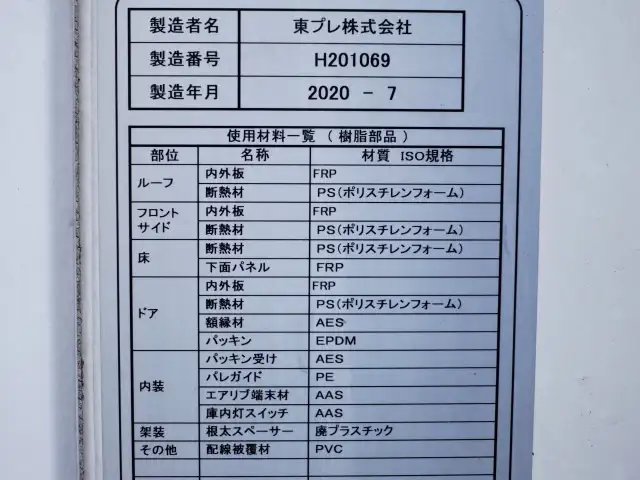 製造者名 東プレ株式会社
製造番号 H201069
製造年月 2020 - 7
使用材料一覧 （ 樹脂部品 ）
部位 名称 材質 ISO規格
ルーフ 内外板 FRP
断熱材 PS(ポリスチレンフォーム)
フロント サイド 内外板 FRP
断熱材 PS(ポリスチレンフォーム)
床 断熱材 PS(ポリスチレンフォーム)
下面パネル FRP
ドア 内外板 FRP
断熱材 PS(ポリスチレンフォーム)
額縁材 AES
パッキン EPDM
内装 パッキン受け AES
バレガイド PE
エアリブ端末材 AAS
庫内灯スイッチ AAS
架装 根太スペーサー 廃プラスチック
その他 配線被覆材 PVC